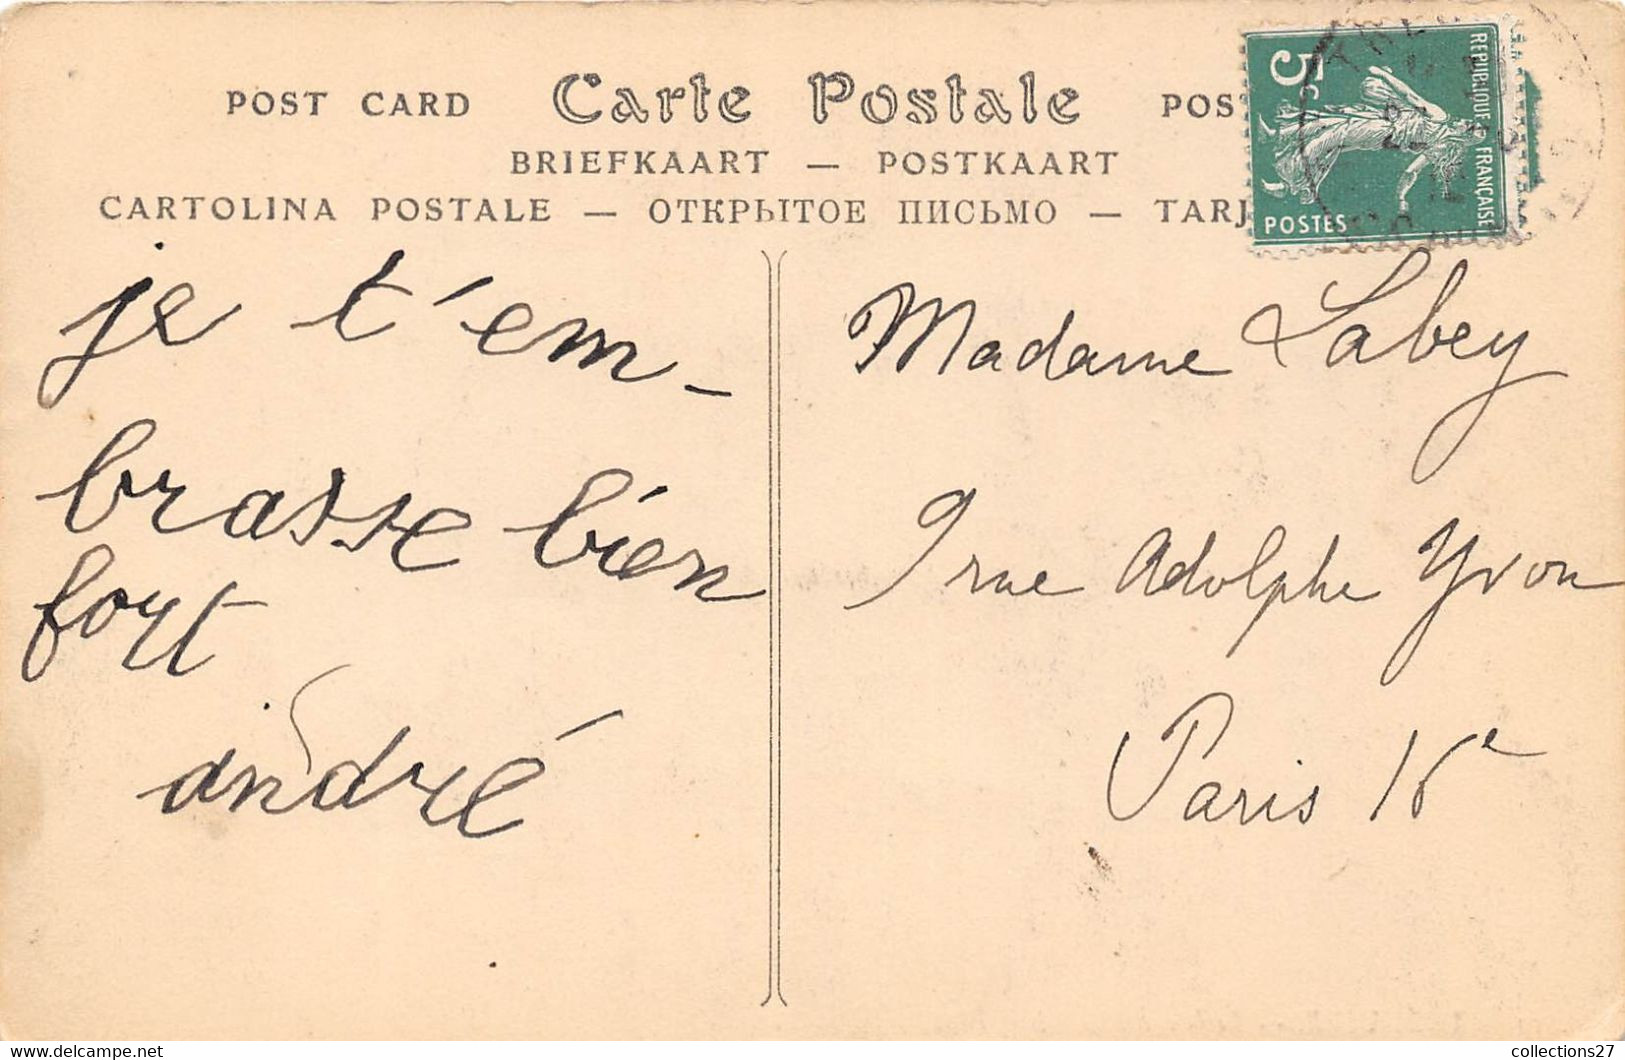 POST CARD Carte Postale POS
BRIEFKAART — POSTKAART
CARTOLINA POSTALE — ОТКРЫТОЕ ПИСЬМО — TARJ
5c
REPUBLIQUE FRANÇAISE
POSTES
je t'em-
brasse bien
fort
andré
Madame Labey
9 rue Adolphe Yvon
Paris 16e
collections27